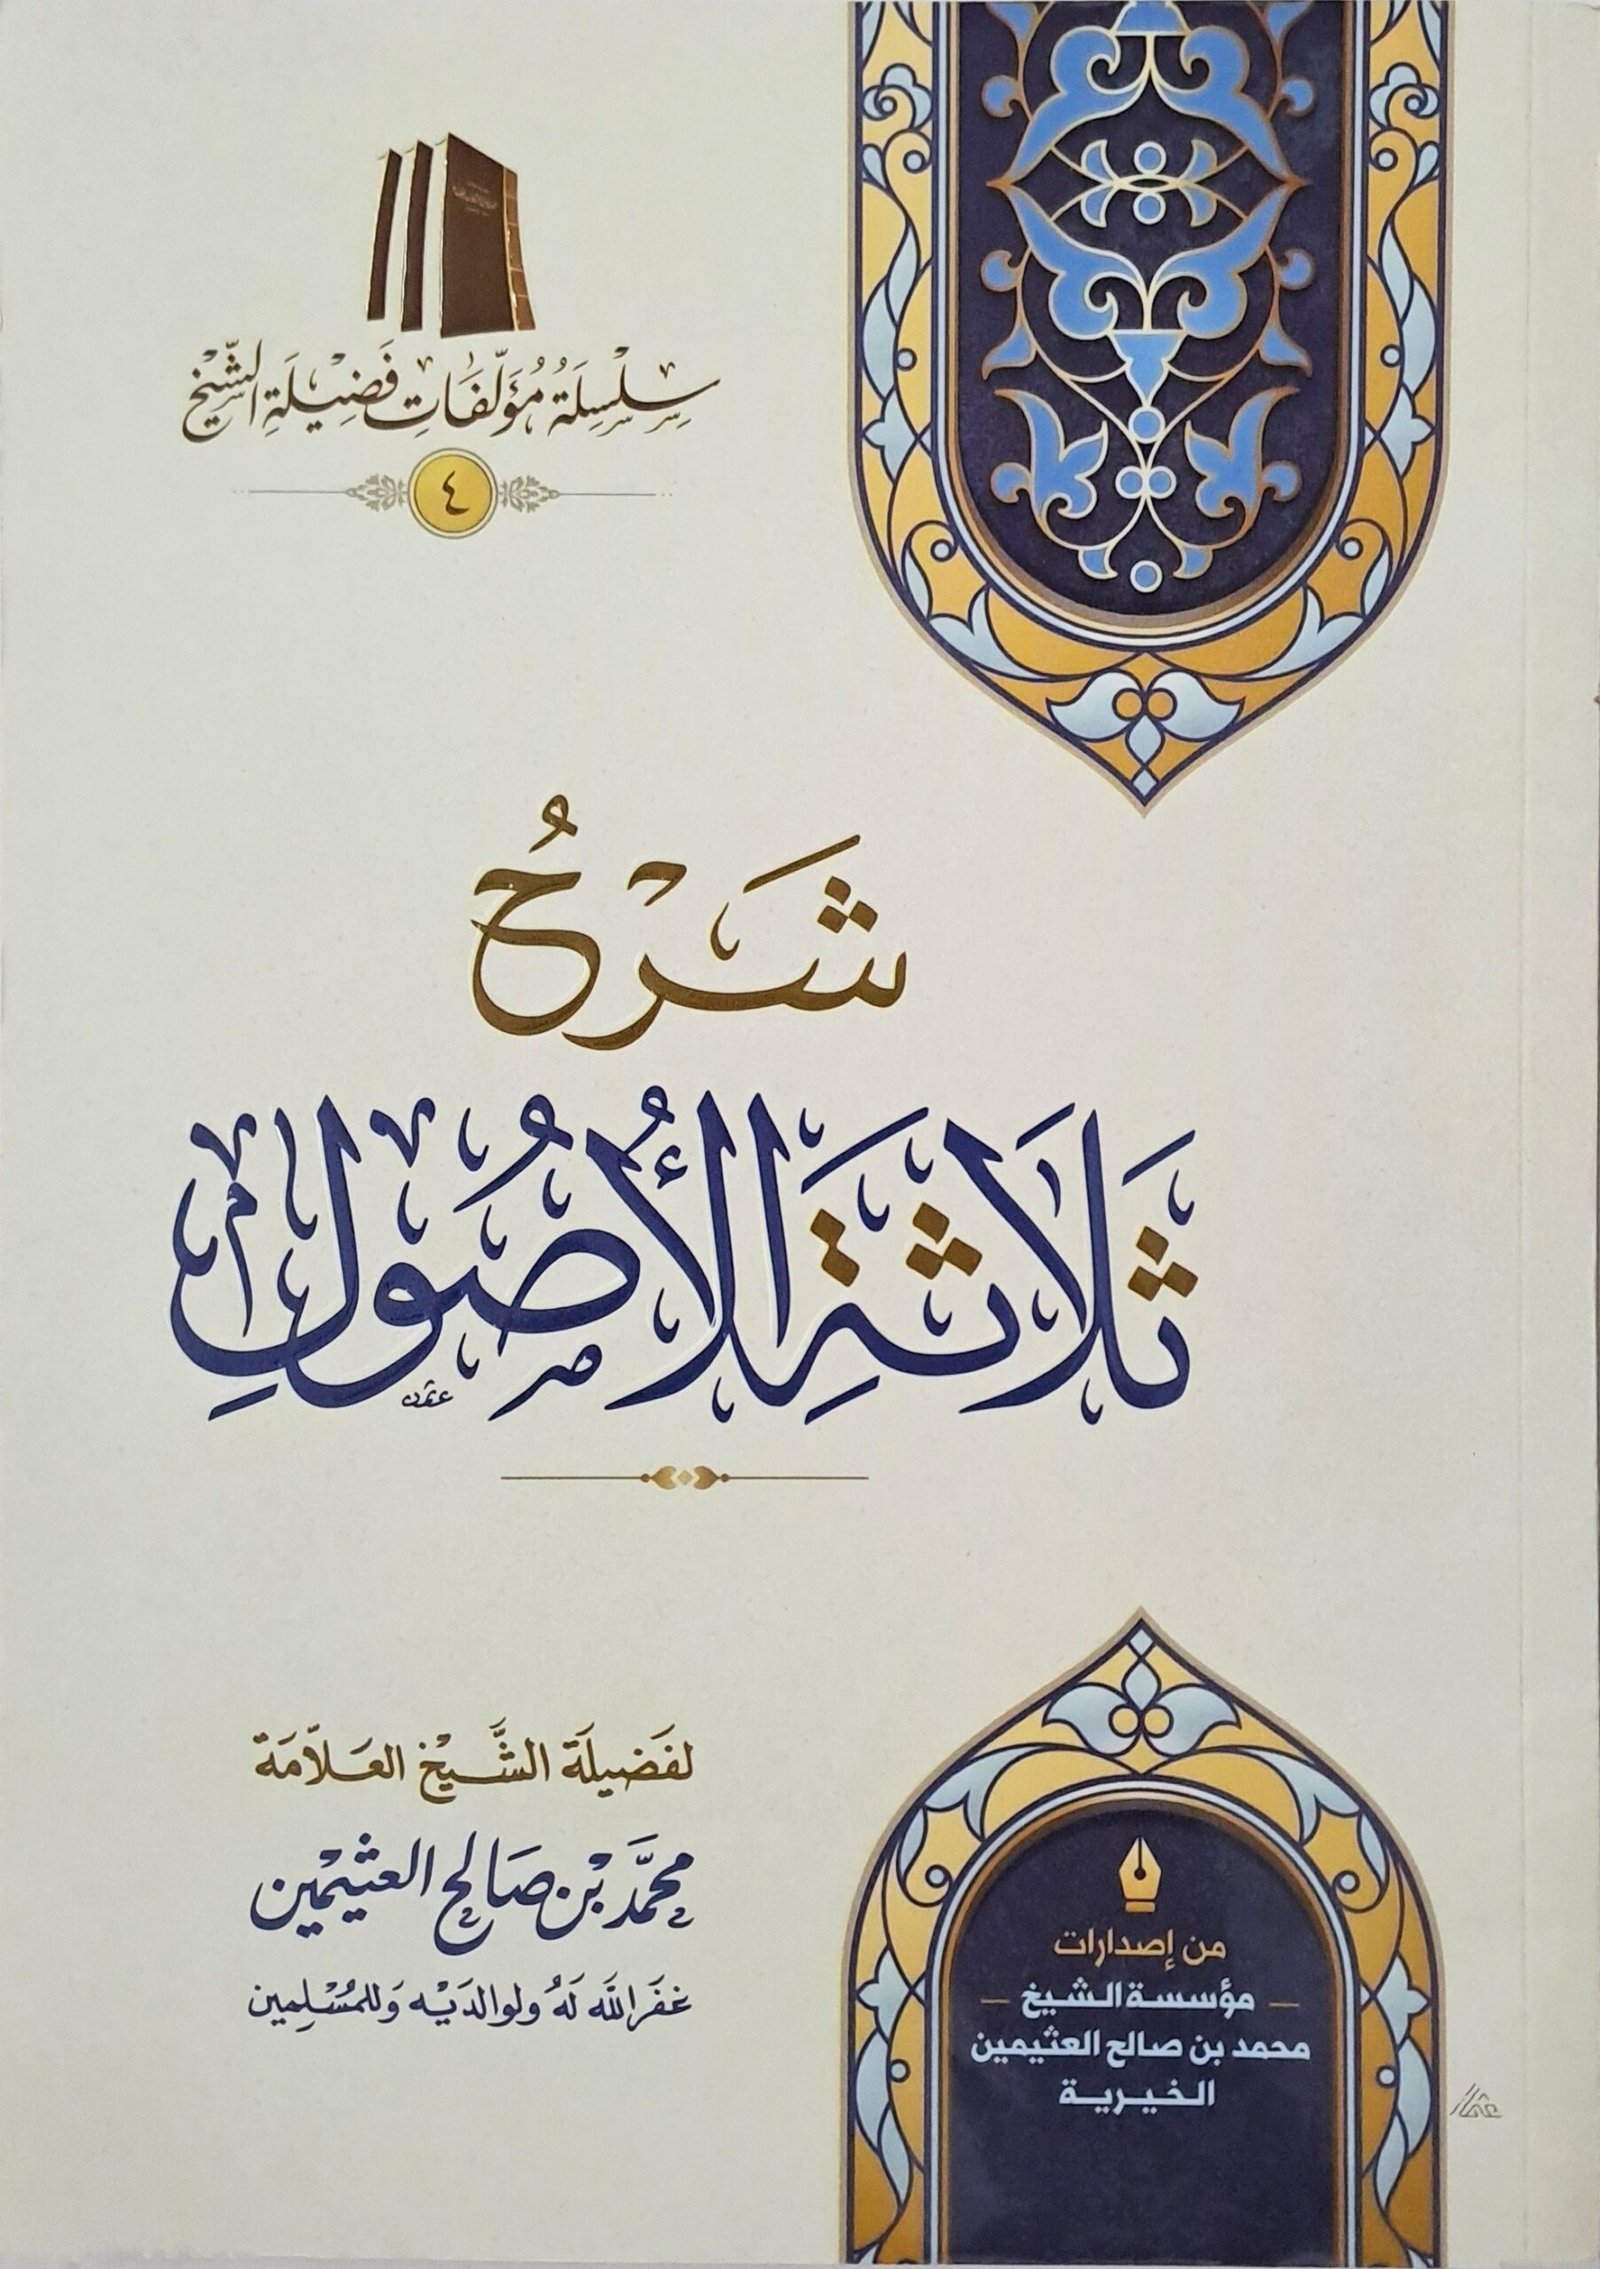 سِلْسِلَةُ مُؤَلَّفَاتِ فَضِيْلَةِ الشَّيْخِ
٤
شَرْحُ
ثَلَاثَةِ الْأُصُولِ
لفَضيلَة الشَّيْخ العَلَّامَة
محمَّد بْن صَالح العثيمْين
غفَر اللَّه لَهُ ولوالدَيْه وَللمُسْلِمين
من إصدارات
مؤسسة الشيخ
محمد بن صالح العثيمين
الخيرية